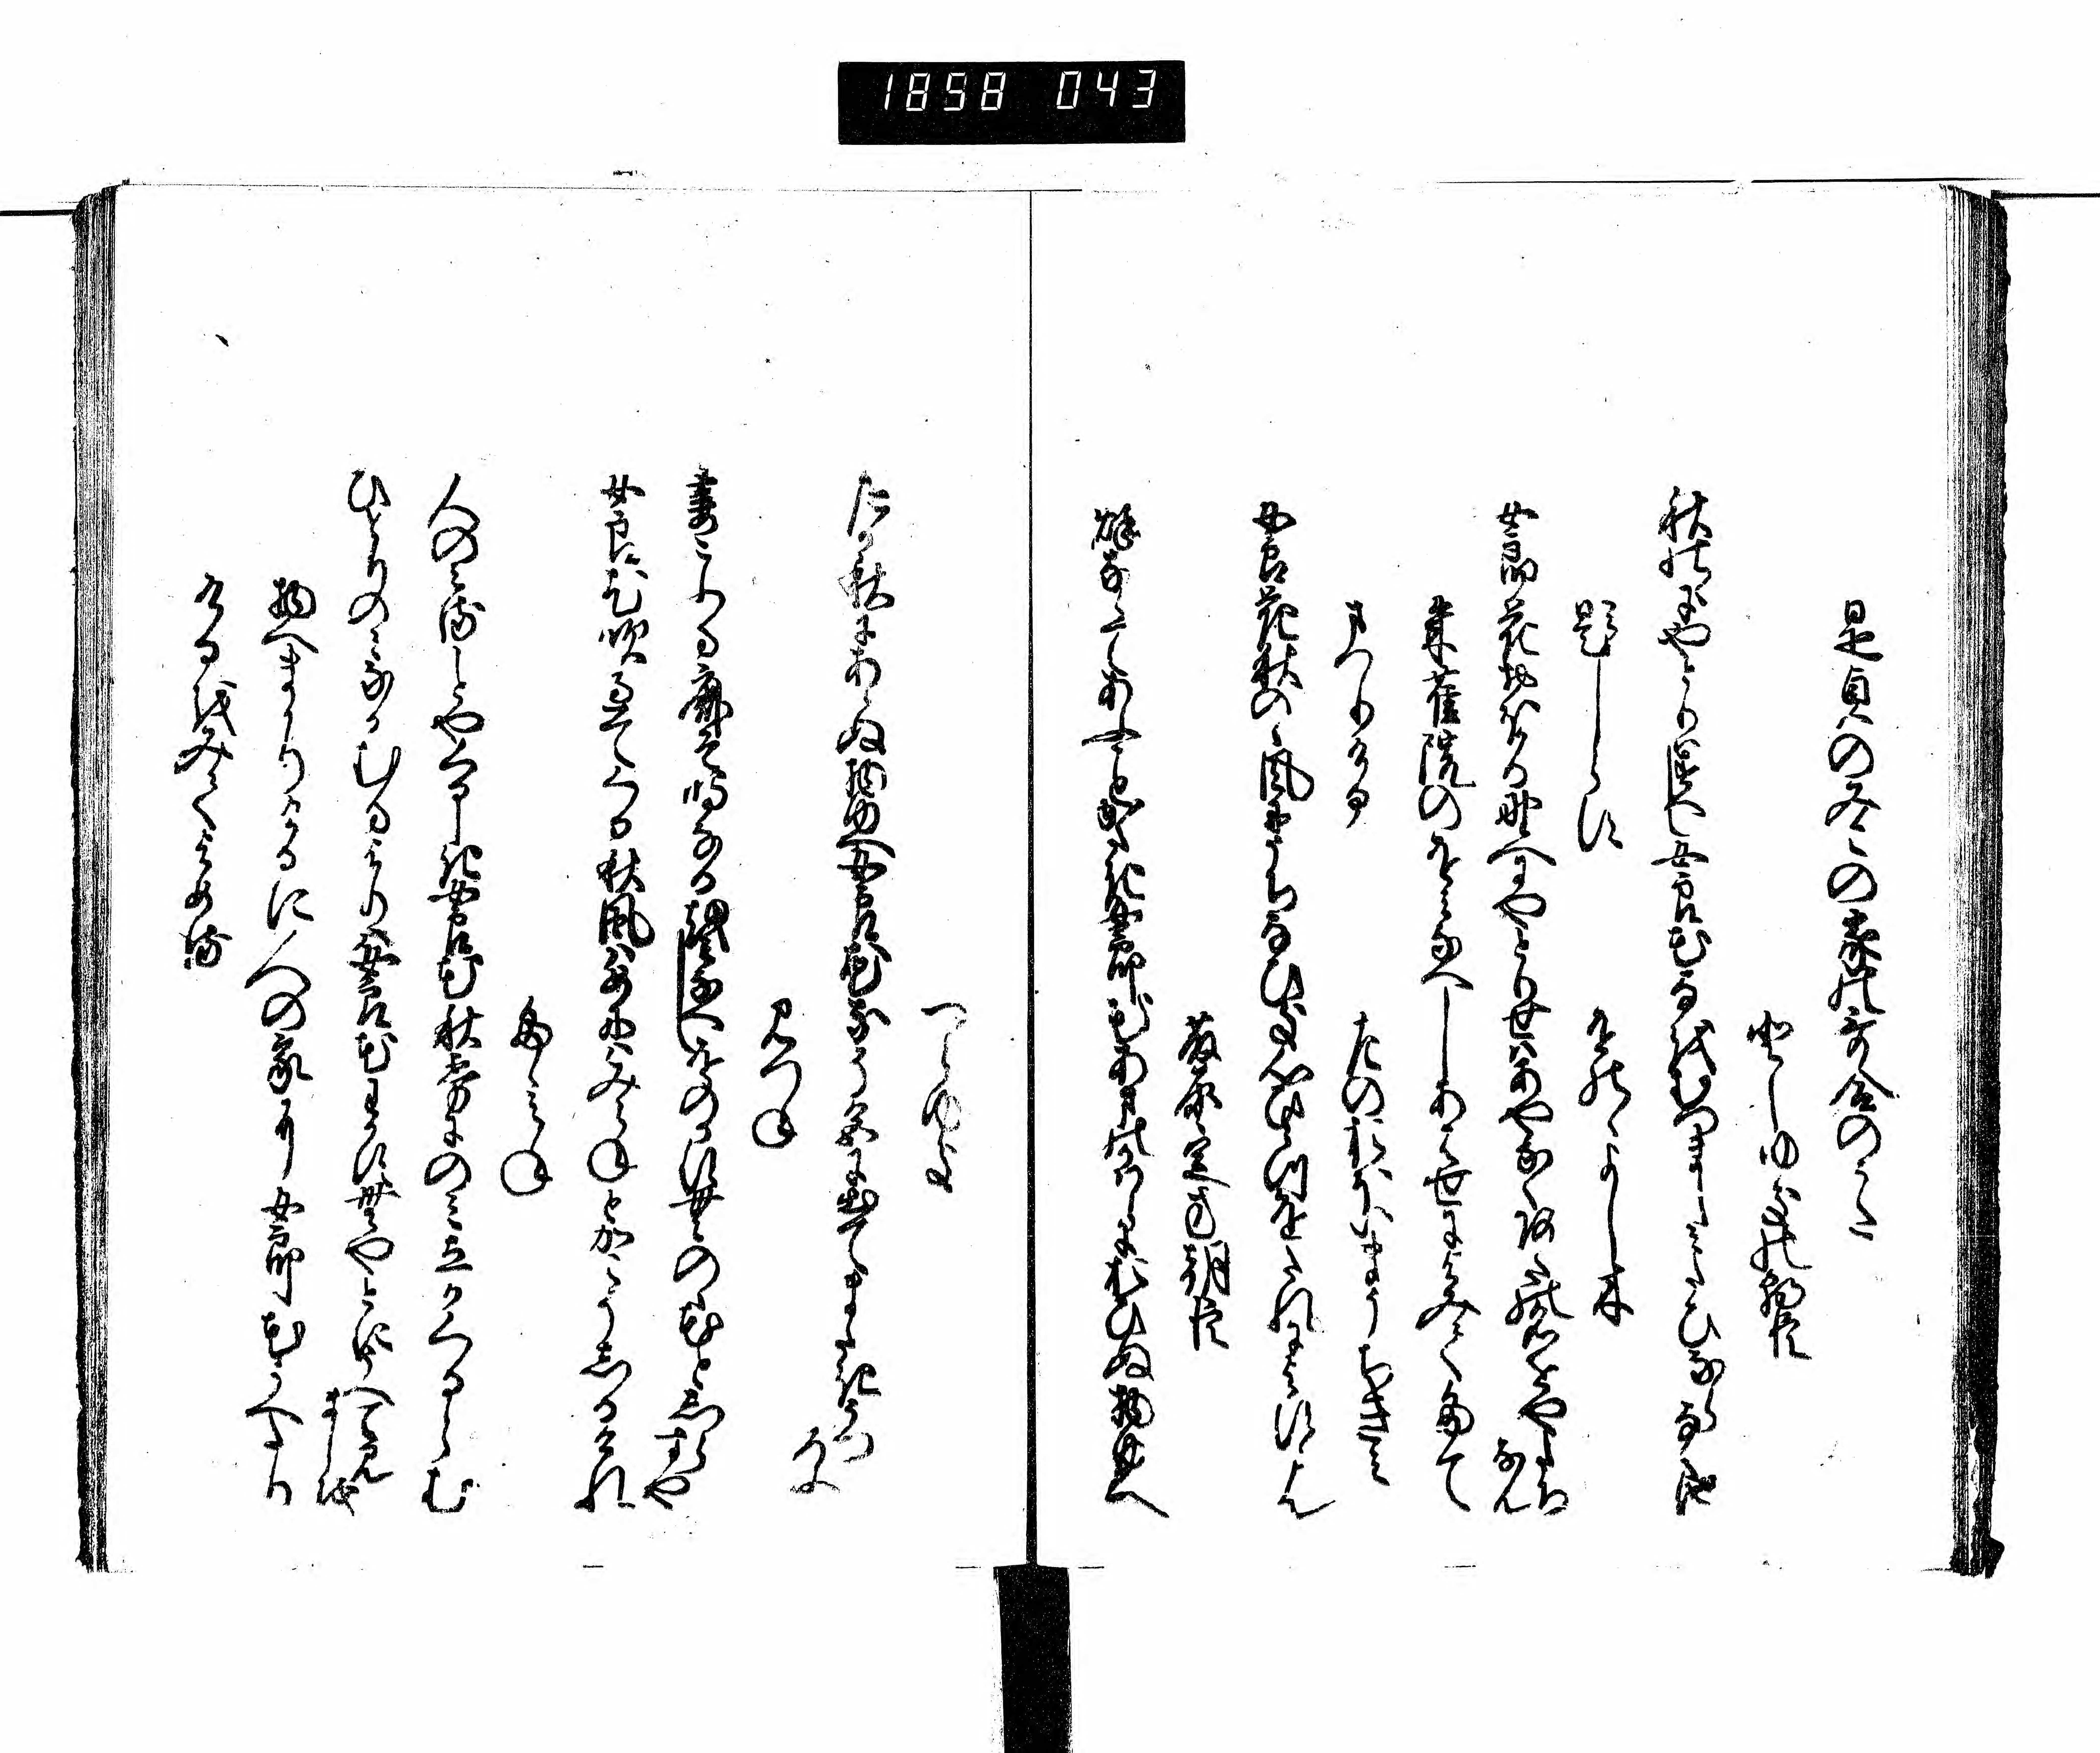 1858 043
是貞のみこの家の哥合のうた
としゆきの朝臣
秋の野にやとりはすへし女郎花名をむつましみたひならなくに
題しらす
をののよし木
女郎花おほかる野へにやとりせはあやなくあたの名をやたち
なん
朱雀院のをみなへしあはせによみて奉て
まつりける
左のおほいまうちきみ
女郎花秋の風にうちなひき心ひとつをたれによすらん
藤原定方朝臣
秋ならてあふことかたき女郎花あまのかはらにおひぬ物ゆへ
つらゆき
たか秋にあらぬ物ゆへ女郎花なそ色に出てまたきうつ
ろふ
みつね
妻こふる鹿そ鳴なる女郎花をのかすむ野の花としら
すや
女郎花吹過てくる秋風はめにはみえねとかこそしるけれ
たゝみね
人のみることやくるしき女郎花秋霧にのみ立かくるらむ
ひとりのみなかむるよりは女郎花わかすむやとにうへて見
ましを
物へまかりけるに人の家に女郎花うへたり
けるをみてよめる